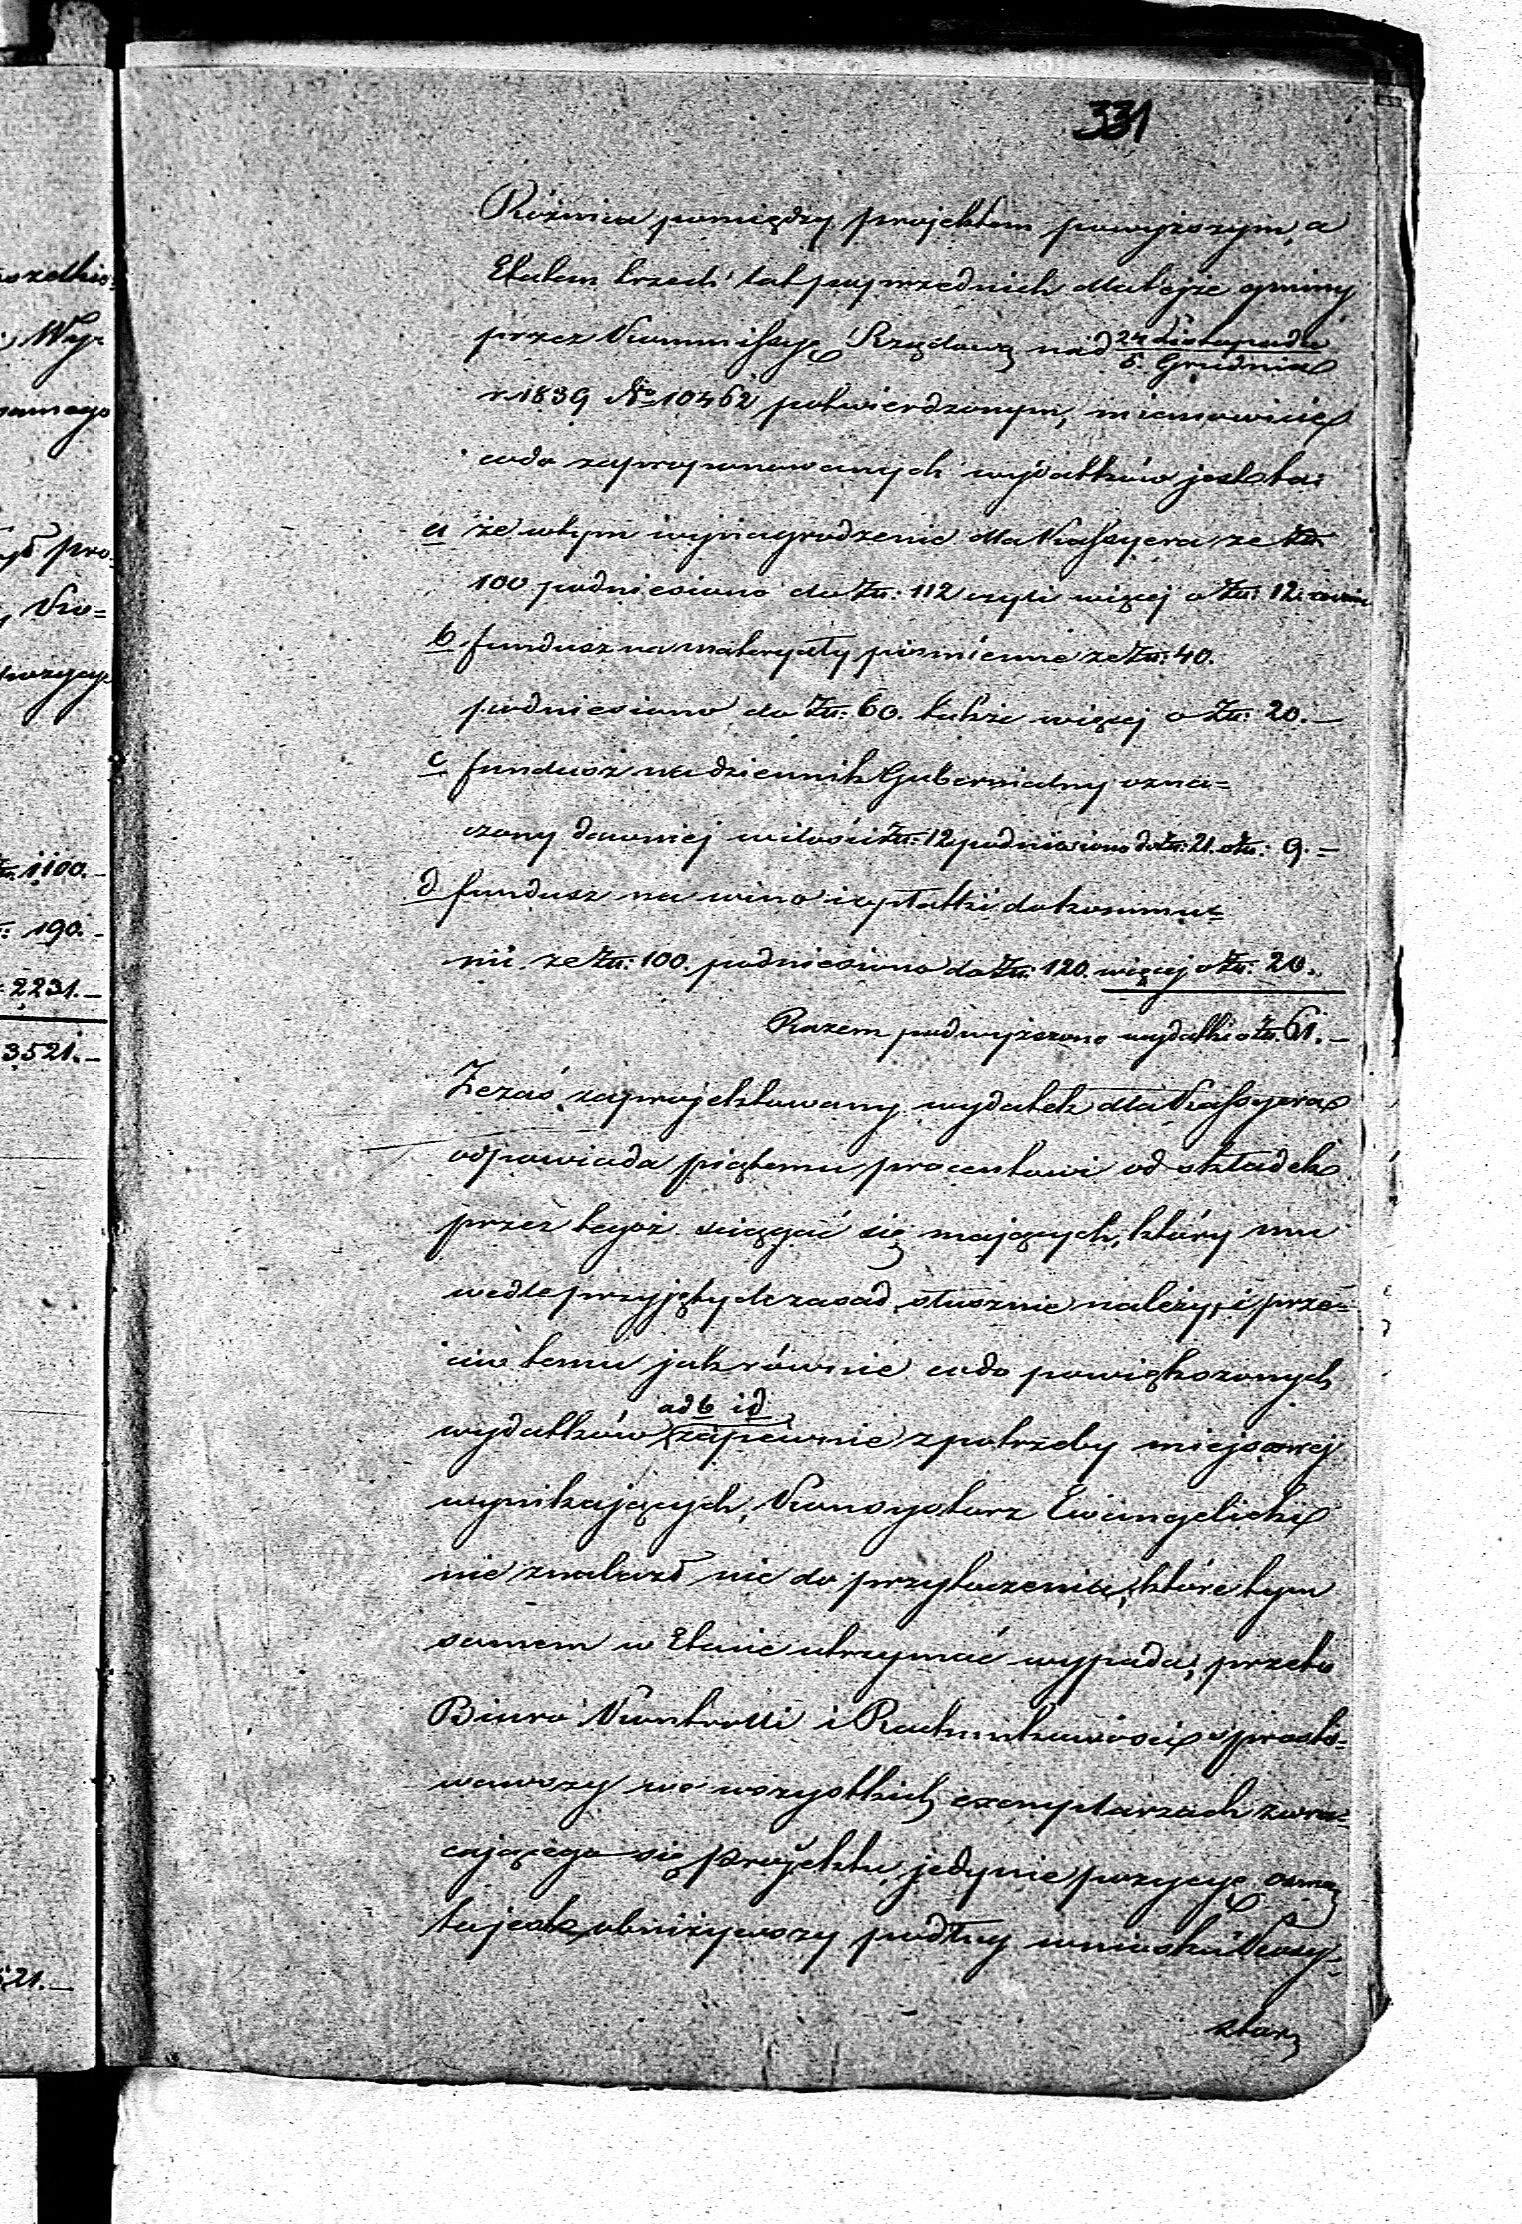 331
Różnica pomiędzy projektem powyższym, a
Etatem trzech lat poprzednich dla tejże gminy
przez Kommissyę Rządową nad 24 Listopada
6. Grudnia
r. 1839 No 10462 potwierdzonym, mianowicie
codo zaproponowanych wydatków jest ta:
a że w tym wynagrodzenie dla Kassyera ze Złł.
100 podniesiono do Złł: 112 czyli więcej o Złł: 12
b fundusz na materyały piśmienne ze Złł: 40.
podniesiono do Złł: 60. także więcej o Złł: 20.—
c fundusz na dziennik Gubernialny ozna=
czony dawniej w ilości Złł: 12 podniesiono do Złł: 21. o Złł: 9.=
d fundusz na wino i opłatki do kommu=
nii ze Złł: 100. podniesiono do Złł: 120. więcej o Złł: 20.
Razem podwyższono wydatki o Złł. 61.—
Że zaś zaprojektowany wydatek dla Kassyera
odpowiada piątemu procentowi od składek
przez tegoż ściągać się mających, który mu
wedle przyjętych zasad słusznie należy, i prze=
ciw temu jak równie codo powiększonych
ad b i d
wydatków zapewnie z potrzeby miejscowej
wynikających, Konsystorz Ewangelicki
nie znalazł nic do przytoczenia, które tym
samem w Etacie utrzymać wypada, przeto
Biuro Kontrolli i Rachunkowości sprosto=
wawszy we wszystkich exemplarzach zwra=
cającego się projektu, jedynie pozycyę ósmą
to jest obniżywszy podług wniosku Kosy=
storz
oszelkie
Wyż
samego
pro
Ko=
pozycye
Złł. 1100.—
: 190.—
2231.—
3521.—
521.—